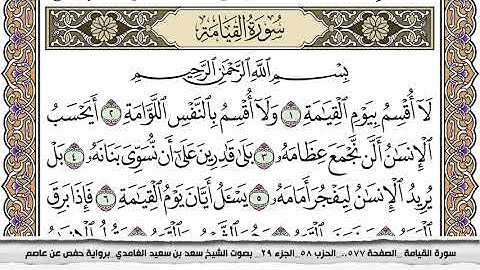 سُورَةُ القِيَامَةِ
بِسْمِ اللَّهِ الرَّحْمَٰنِ الرَّحِيمِ
لَا أُقْسِمُ بِيَوْمِ الْقِيَامَةِ ١ وَلَا أُقْسِمُ بِالنَّفْسِ اللَّوَّامَةِ ٢ أَيَحْسَبُ
الْإِنسَانُ أَلَّن نَّجْمَعَ عِظَامَهُ ٣ بَلَىٰ قَادِرِينَ عَلَىٰ أَن نُّسَوِّيَ بَنَانَهُ ٤ بَلْ
يُرِيدُ الْإِنسَانُ لِيَفْجُرَ أَمَامَهُ ٥ يَسْأَلُ أَيَّانَ يَوْمُ الْقِيَامَةِ ٦ فَإِذَا بَرِقَ
سورة القيامة _الصفحة ٥٧٧.. الحزب ٥٨ _الجزء ٢٩_ بصوت الشيخ سعد بن سعيد الغامدي _برواية حفص عن عاصم